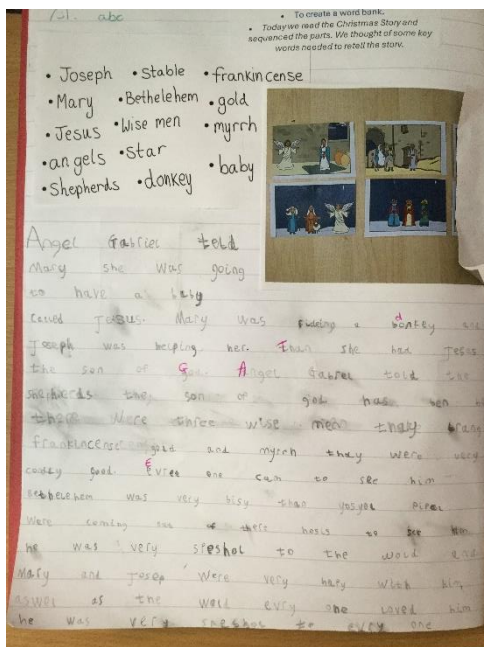 abc
• To create a word bank.
• Today we read the Christmas Story and
sequenced the parts. We thought of some key
words needed to retell the story.
• Joseph • Stable • frankincense
• Mary • Bethelehem • gold
• Jesus • Wise men • myrrh
• angels • Star
• baby
• Shepherds • donkey
Angel Gabriel told
Mary she was going
to have a baby
called Jesus. Mary was rideing a donkey and
Joseph was helping her. Than she had Jesus
the son of God Angel Gabriel told the
shepherds the son of god has ben
there were three wise men thay brang
frankincense gold and myrrh they were very
good Evree one cam to see him
Bethelehem was very bisy than
were coming to see him
he was very speshol to the wold and
Mary and Josep were very hapy with him
aswel as the wold evry one loved him
he was very speshol to evry one